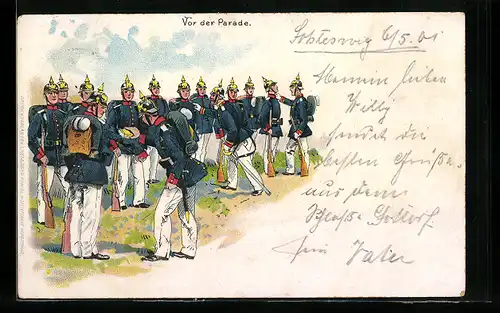 Vor der Parade.
Schleswig 6/5. 01
Meinem lieben
Willy
sendet die
besten Grüße
aus dem
Schloße Gottorf
sein Vater